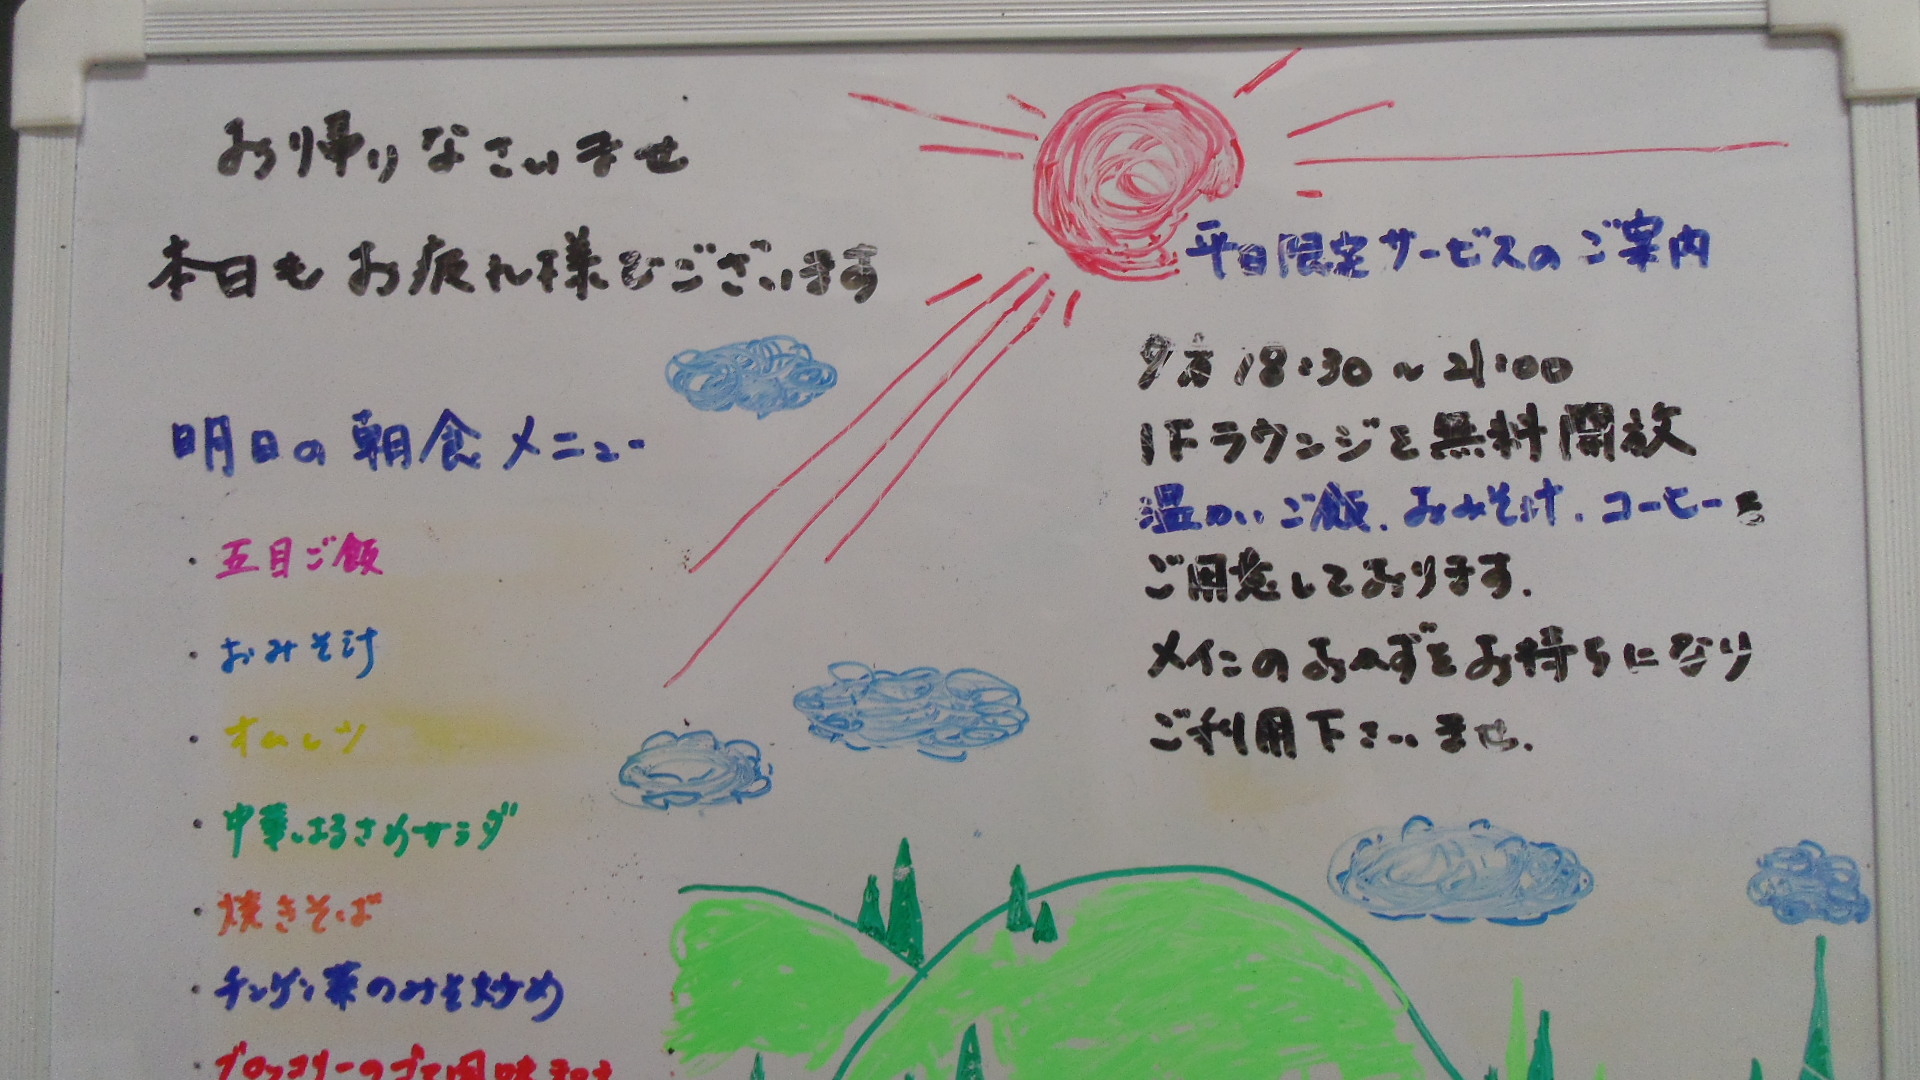 お帰りなさいませ
本日もお疲れ様でございます
明日の朝食メニュー
・五目ご飯
・おみそ汁
・オムレツ
・中華はるさめサラダ
・焼きそば
・チンゲン菜のみそ炒め
・ブロッコリーのゴマ風味和え
平日限定サービスのご案内
夕方18:30～21:00
1Fラウンジを無料開放
温かいご飯.おみそ汁.コーヒーを
ご用意しております.
メインのおかずをお持ちになり
ご利用下さいませ.